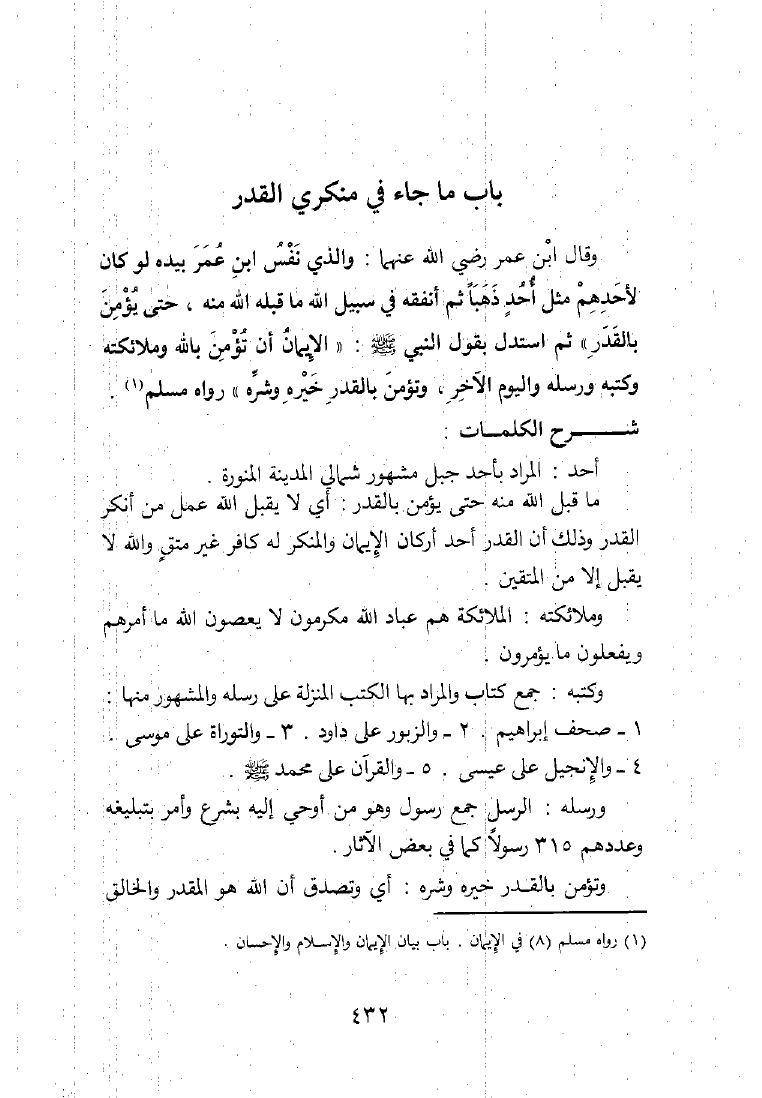 باب ما جاء في منكري القدر
وقال ابْن عمر رضي الله عنهما : والذي نَفْسُ ابنِ عُمَرَ بيده لو كان
لأحَدِهِمْ مثل أُحُدٍ ذَهَبَاً ثم أنفقه في سبيل الله ما قبله الله منه ، حتى يُؤْمِنَ
بالقَدَرِ» ثم استدل بقول النبي ﷺ : « الإِيمانُ أن تُؤْمِنَ بالله وملائكته
وكتبه ورسله واليوم الآخرِ ، وتؤمنَ بالقدرِ خَيْرهِ وشرِّه » رواه مسلم(١) .
شـــــرح الكلمـات :
أحد : المراد بأحد جبل مشهور شمالي المدينة المنورة .
ما قبل الله منه حتى يؤمن بالقدر : أي لا يقبل الله عمل من أنكر
القدر وذلك أن القدر أحد أركان الإِيمان والمنكر له كافر غير متقٍ والله لا
يقبل إلا من المتقين .
وملائكته : الملائكة هم عباد الله مكرمون لا يعصون الله ما أمرهم
ويفعلون ما يؤمرون .
وكتبه : جمع كتاب والمراد بها الكتب المنزلة على رسله والمشهور منها :
١ ـ صحف إبراهيم . ٢ ـ والزبور على داود . ٣ ـ والتوراة على موسى .
٤ ـ والإِنجيل على عيسى . ٥ ـ والقرآن على محمد ﷺ .
ورسله : الرسل جمع رسول وهو من أوحي إليه بشرع وأمر بتبليغه
وعددهم ٣١٥ رسولاً كما في بعض الآثار .
وتؤمن بالقـدر خيره وشره : أي وتصدق أن الله هو المقدر والخالق
(١) رواه مسلم (٨) في الإِيمان . باب بيان الإِيمان والإِسـلام والإِحسان .
٤٣٢